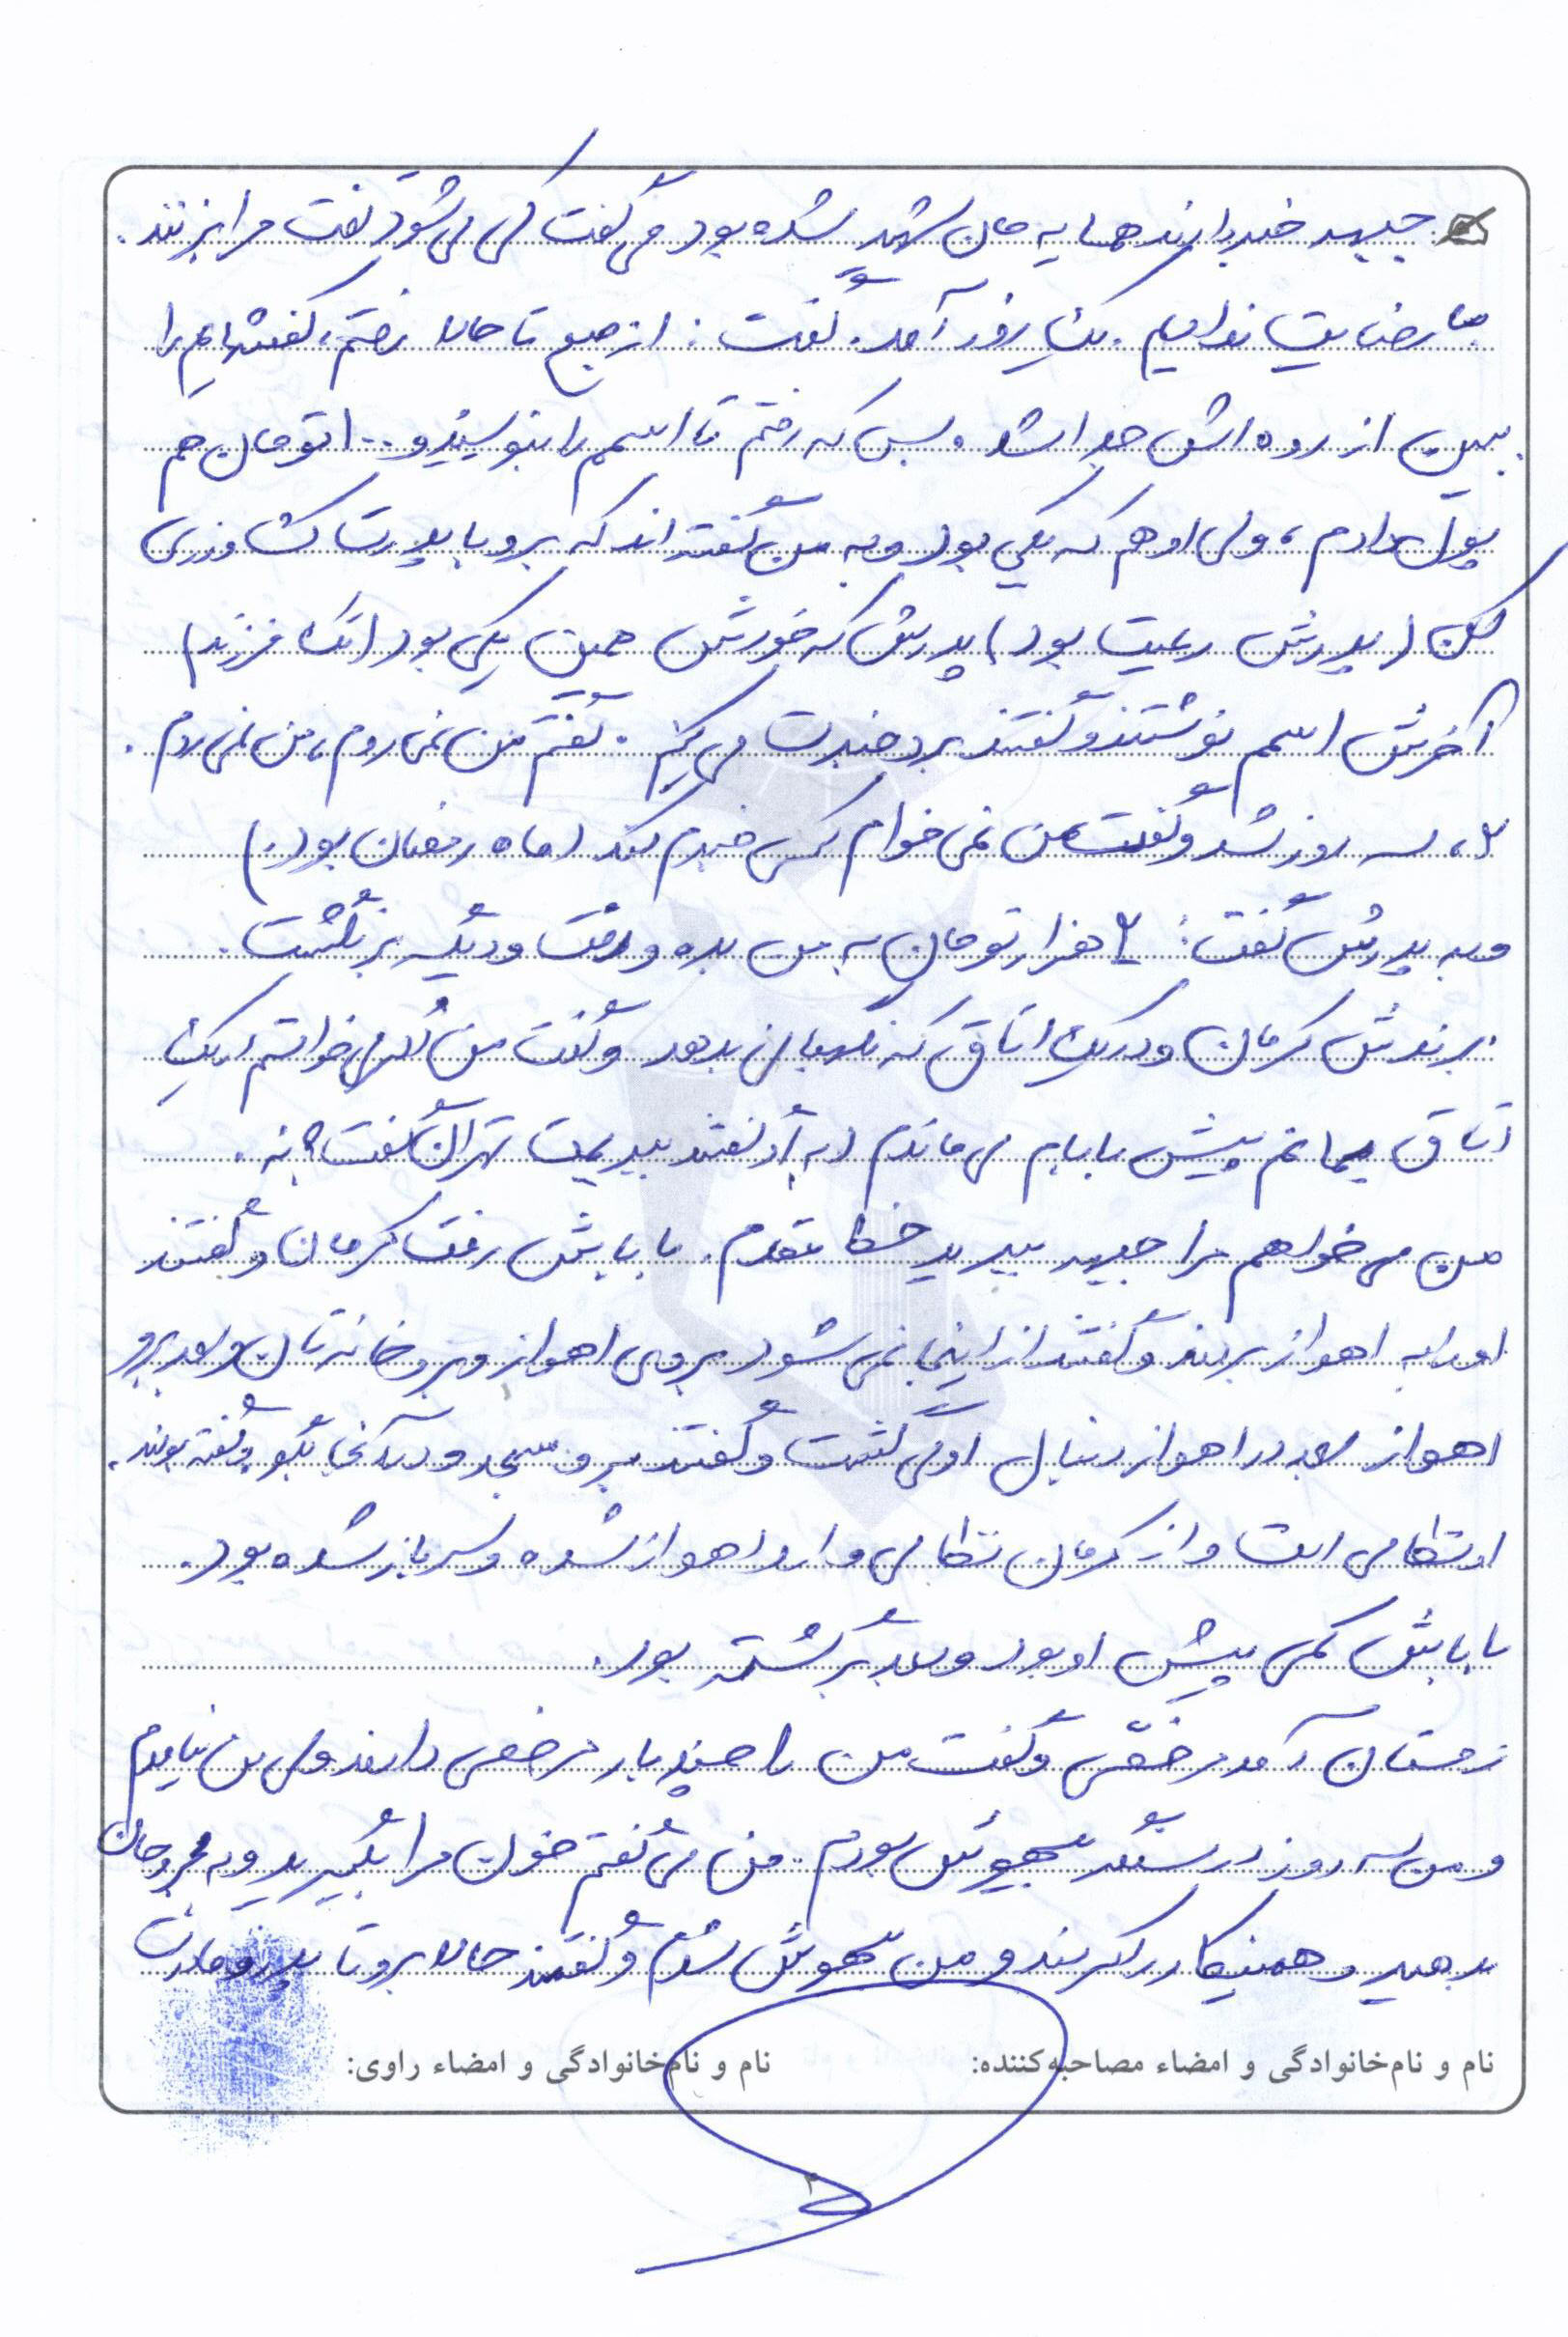 جبهه خبر دارند همسایه مان شهید شده بود می گفت کی می شود نفت مرا بزنند.
ما رضایت ندادیم. یک روز آمد. گفت: از صبح تا حالا رفتم، کفشهایم را
ببین از روده اش جدا شد. بس که رفتم تا اسمم را بنویسند و ۱۰۰ تومان هم
پول دادم، ولی او هم که یکی بود و به من گفته اند که برو با پدرت کشاورزی
کن (پدرش رعیت بود) پدرش که خودش همین یکی بود (تک فرزند)
آخرش اسمم نوشتند و گفتند برو خبرت می کنیم. گفتم من نمی روم، من نمی روم.
۲، سه روز شد و گفت من نمی خوام کسی خبرم کند (ماه رمضان بود.)
و به پدرش گفت: ۲ هزار تومان به من بده و رفت و دیگه برنگشت.
بردندش کرمان و در یک اتاق که نگهبانی بدهد و گفت من اگر می خواستم در یک
اتاق بمانم پیش بابام می ماندم (به او گفتند ببریمت تهران گفت: نه.
من می خواهم مرا جبهه ببرید خط مقدم. بابایش رفت کرمان و گفتند
او را به اهواز بردند و گفتند از اینجا نمی شود بروی اهواز و برو خانه تان و بعد برو
اهواز بعد در اهواز دنبال او می گشت و گفتند برو مسجد و در آنجا بگو و گفته بودند.
او نظامی است و از کرمان نظامی وارد اهواز شده و سرباز شده بود.
بابایش کمی پیش او بود و بعد برگشته بود.
زمستان آمد مرخصی و گفت من را چند بار مرخصی دادند ولی من نیامدم
و من سه روز در سنگر بیهوش بودم. من می گفتم خون مرا بگیرید و به مجروحان
بدهید و همینکار را کردند و من بیهوش شدم و گفتند حالا برو تا پدر و مادرت
نام و نام‌خانوادگی و امضاء مصاحبه‌کننده: نام و نام‌خانوادگی و امضاء راوی:
۲